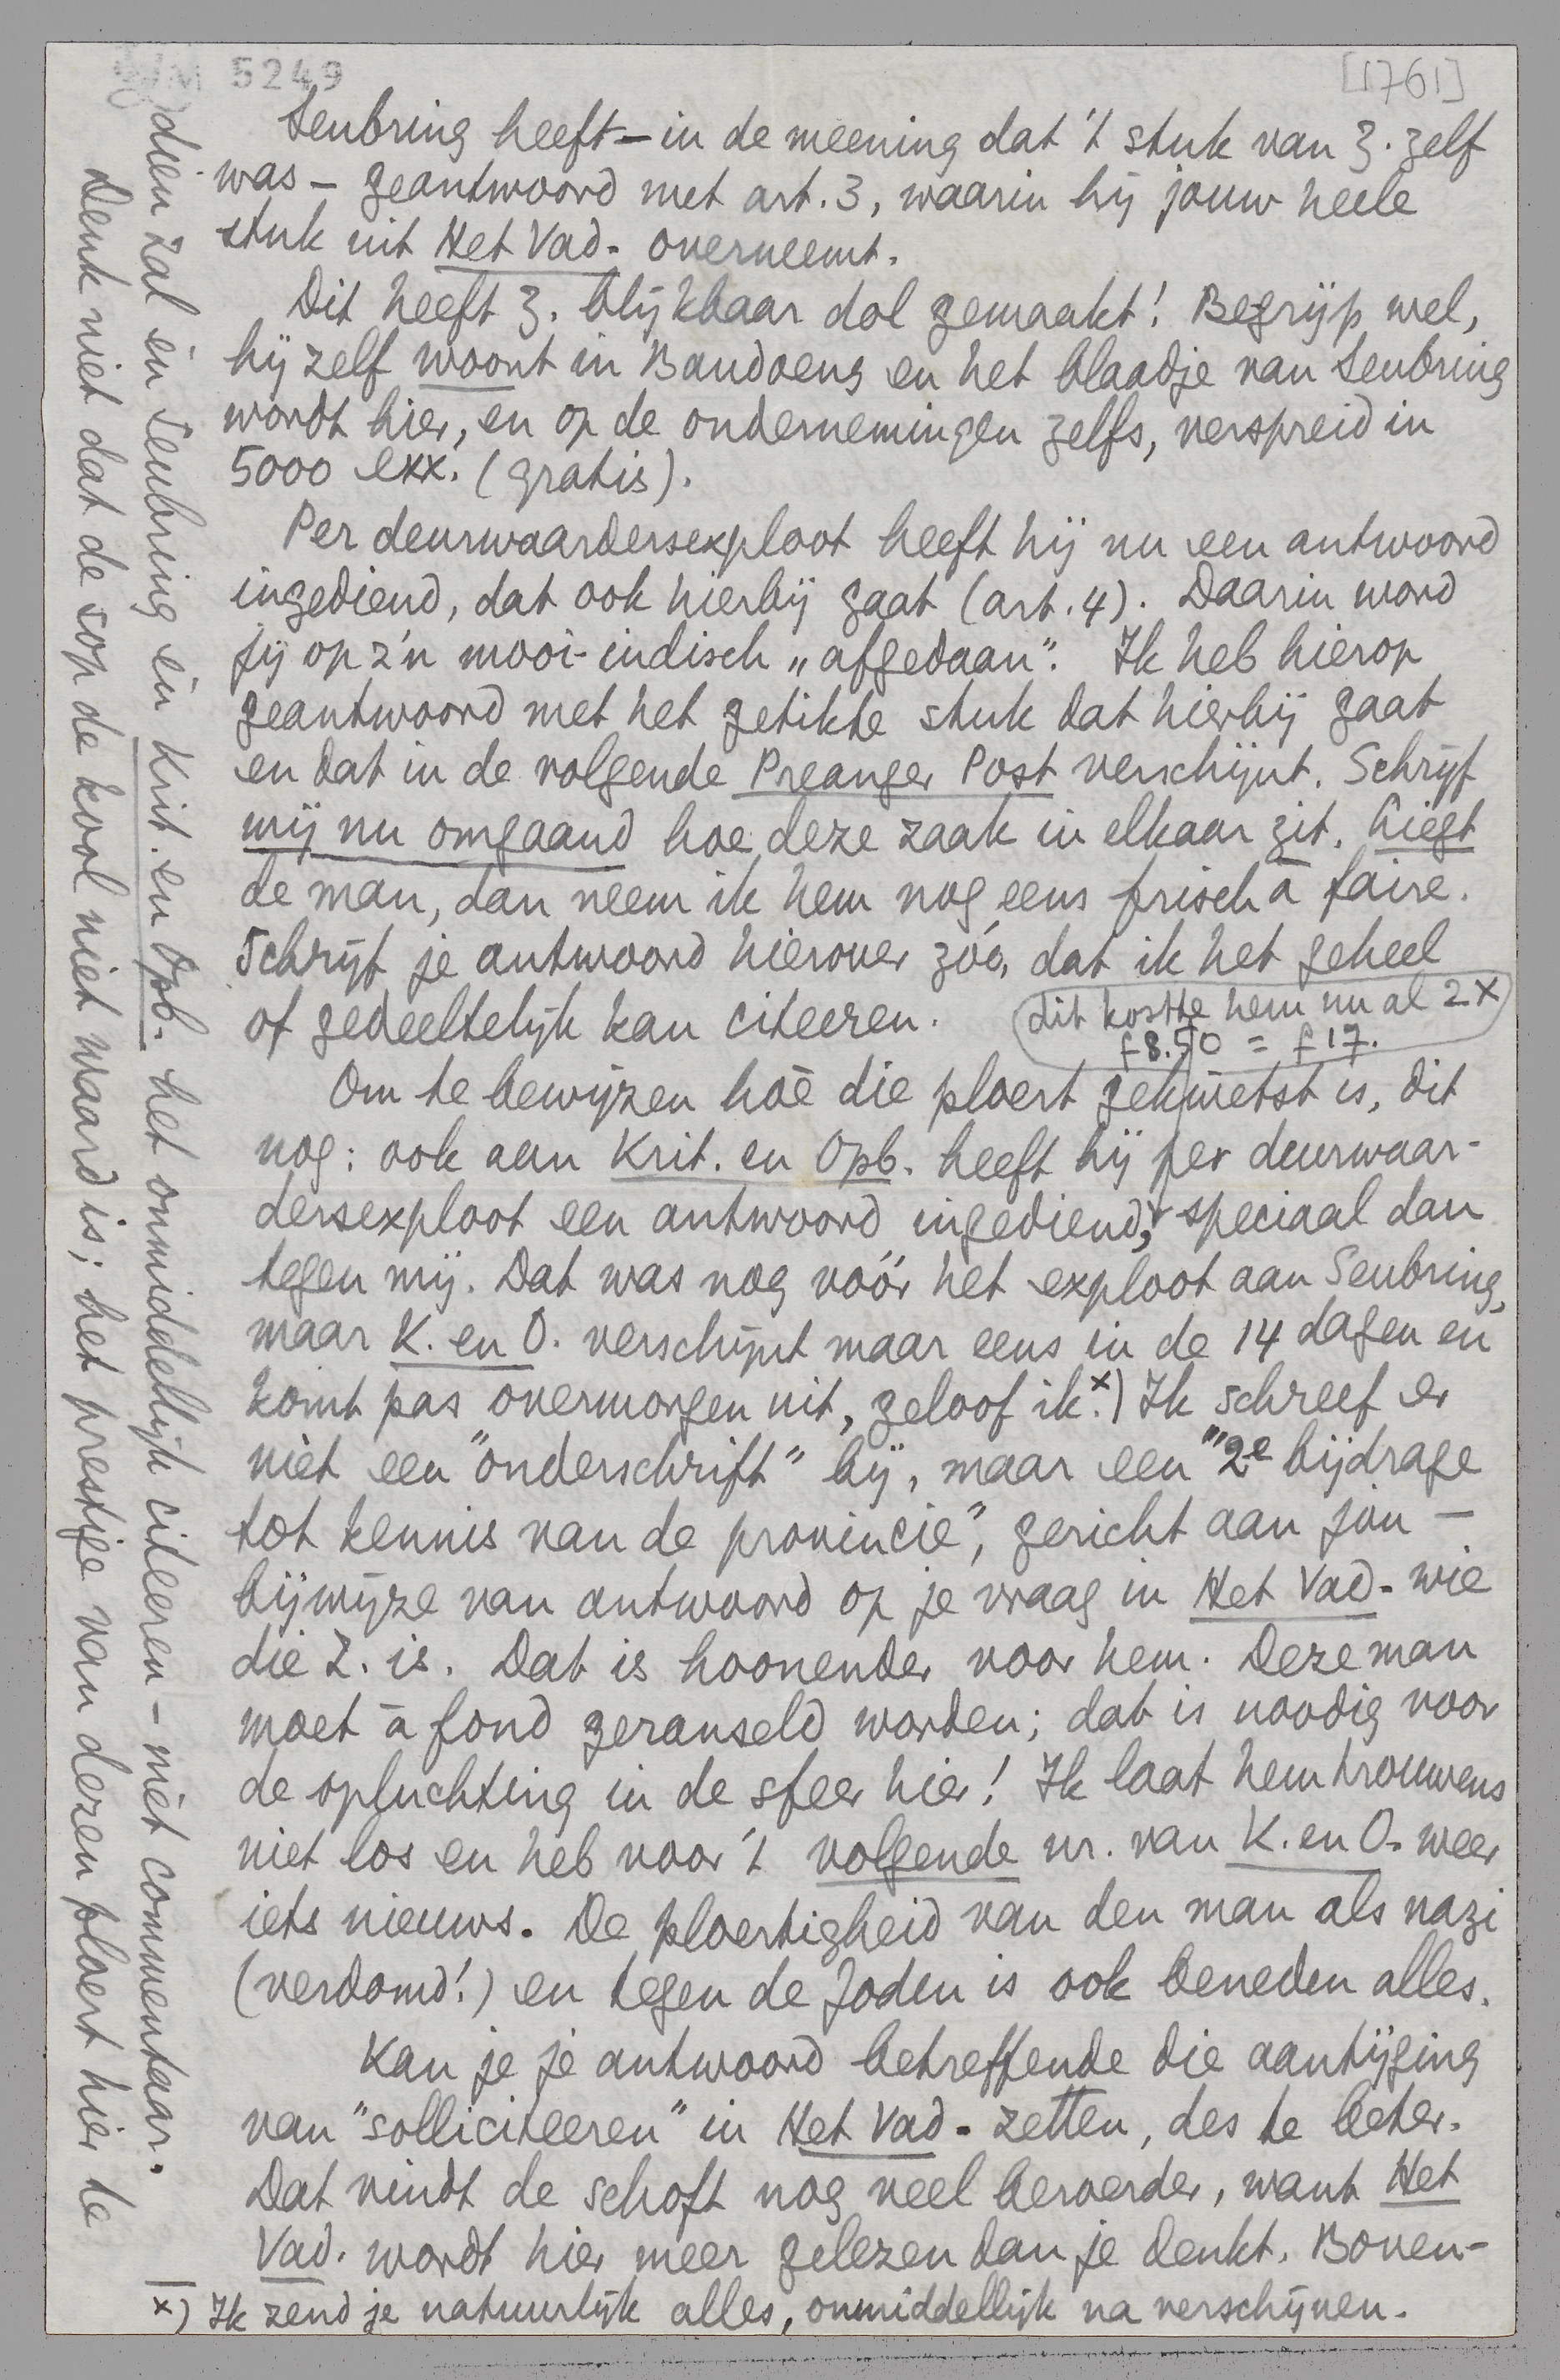 5249
[1761]
Seubring heeft – in de meening dat 't stuk van Z. zelf
was – geantwoord met art. 3, waarin hij jouw heele
stuk uit Het Vad. overneemt.
Dit heeft Z. blijkbaar dol gemaakt! Begrijp wel,
hij zelf woont in Bandoeng en het blaadje van Seubring
wordt hier, en op de ondernemingen zelfs, verspreid in
5000 exx. (gratis).
Per deurwaardersexploot heeft hij nu een antwoord
ingediend, dat ook hierbij gaat (art. 4). Daarin word
jij op z'n mooi-indisch „afgedaan". Ik heb hierop
geantwoord met het getikte stuk dat hierbij gaat
en dat in de volgende Preanger Post verschijnt. Schrijf
mij nu omgaand hoe deze zaak in elkaar zit. Liegt
de man, dan neem ik hem nog eens frisch à faire.
Schrijf je antwoord hierover zóó, dat ik het geheel
of gedeeltelijk kan citeeren.
dit kostte hem nu al 2 x
f 8.50 = f 17.
Om te bewijzen hoè die ploert gekwetst is, dit
nog: ook aan Krit. en Opb. heeft hij per deurwaar-
dersexploot een antwoord ingediend, speciaal dan
tegen mij. Dat was nog vóór het exploot aan Seubring,
maar K. en O. verschijnt maar eens in de 14 dagen en
komt pas overmorgen uit, geloof ik. x) Ik schreef er
niet een "onderschrift" bij, maar een "2e bijdrage
tot kennis van de provincie", gericht aan jòu –
bijwijze van antwoord op je vraag in Het Vad. wie
die Z. is. Dat is hoonender voor hem. Deze man
moet à fond geranseld worden; dat is noodig voor
de opluchting in de sfeer hier! Ik laat hem trouwens
niet los en heb voor 't volgende nr. van K. en O. weer
iets nieuws. De ploertigheid van den man als nazi
(verdomd!) en tegen de Joden is ook beneden alles.
Kan je je antwoord betreffende die aantijging
van "solliciteeren" in Het Vad. zetten, des te beter.
Dat vindt de schoft nog veel beroerder, want Het
Vad. wordt hier meer gelezen dan je denkt. Boven-
x) Ik zend je natuurlijk alles, onmiddellijk na verschijnen.
dien zal èn Seubring èn Krit. en Opb. het onmiddellijk citeeren – mèt commentaar.
Denk niet dat de sop de kool niet waard is; het prestige van dezen ploert hier te